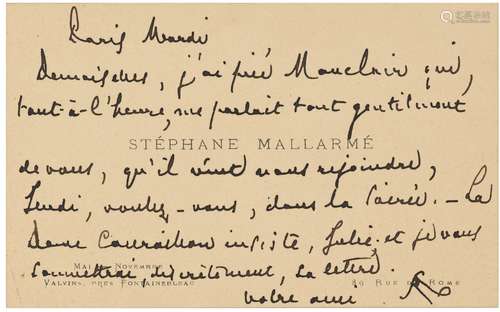 Paris Mardi
Demoiselles, j'ai prié Mauclair qui,
tout-à-l'heure, me parlait tout gentiment
STÉPHANE MALLARMÉ
de vous, qu'il vînt nous rejoindre,
Jeudi, voulez-vous, dans la soirée. - La
Dame insiste, Julie, et je vous
soumettrai, discrètement, sa lettre.
MAI NOVEMBRE
VALVINS, PRÈS FONTAINEBLEAU
RUE DE ROME
votre ami